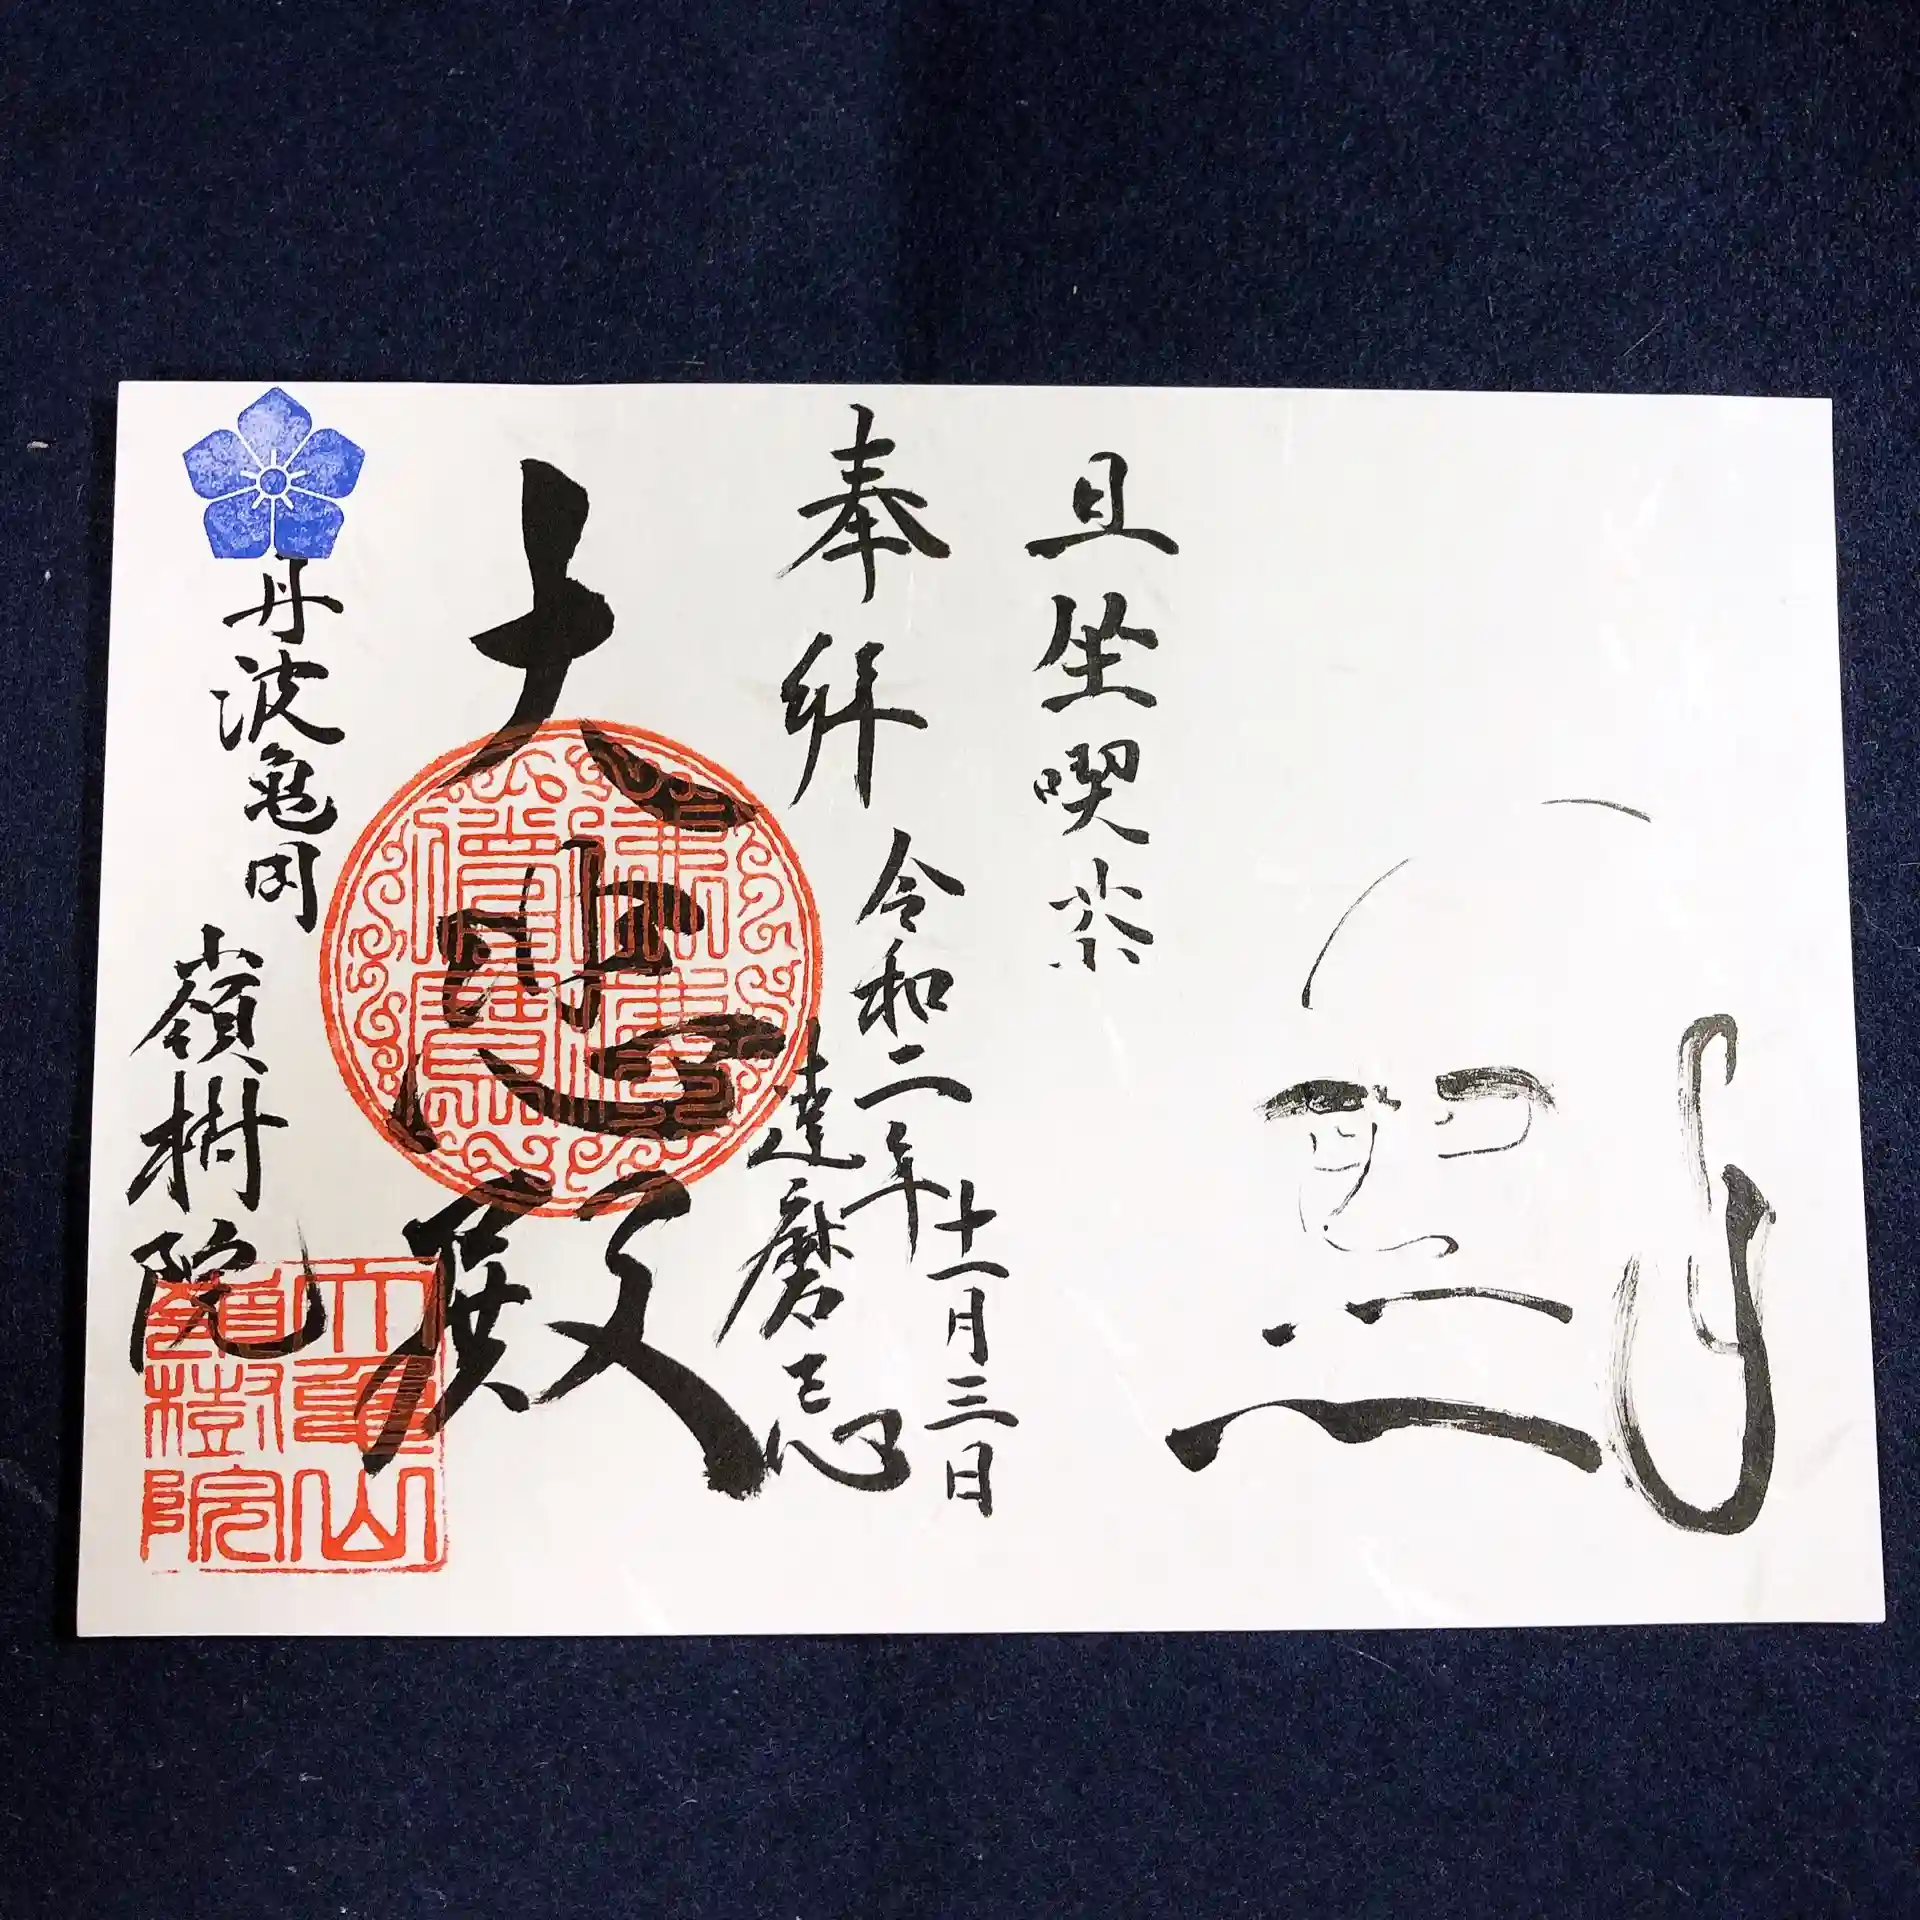 且坐喫茶
奉拝
令和二年十一月三日
達磨忌
大悲殿
丹波亀岡
嶺樹院
大亀山
嶺樹院
佛法僧寶